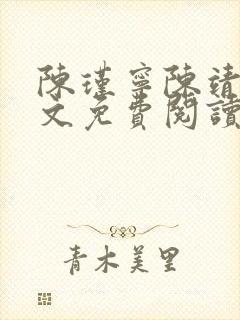 陳瑾寧陳靖
文免費閱讀
青木美里